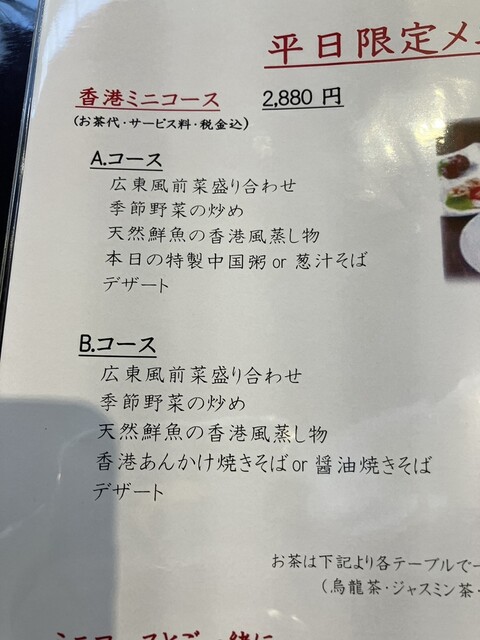 平日限定メ
香港ミニコース 2,880 円
(お茶代・サービス料・税金込)
A.コース
広東風前菜盛り合わせ
季節野菜の炒め
天然鮮魚の香港風蒸し物
本日の特製中国粥 or 葱汁そば
デザート
B.コース
広東風前菜盛り合わせ
季節野菜の炒め
天然鮮魚の香港風蒸し物
香港あんかけ焼きそば or 醤油焼きそば
デザート
お茶は下記より各テーブルで一
(烏龍茶・ジャスミン茶・
ミニコースとご一緒に